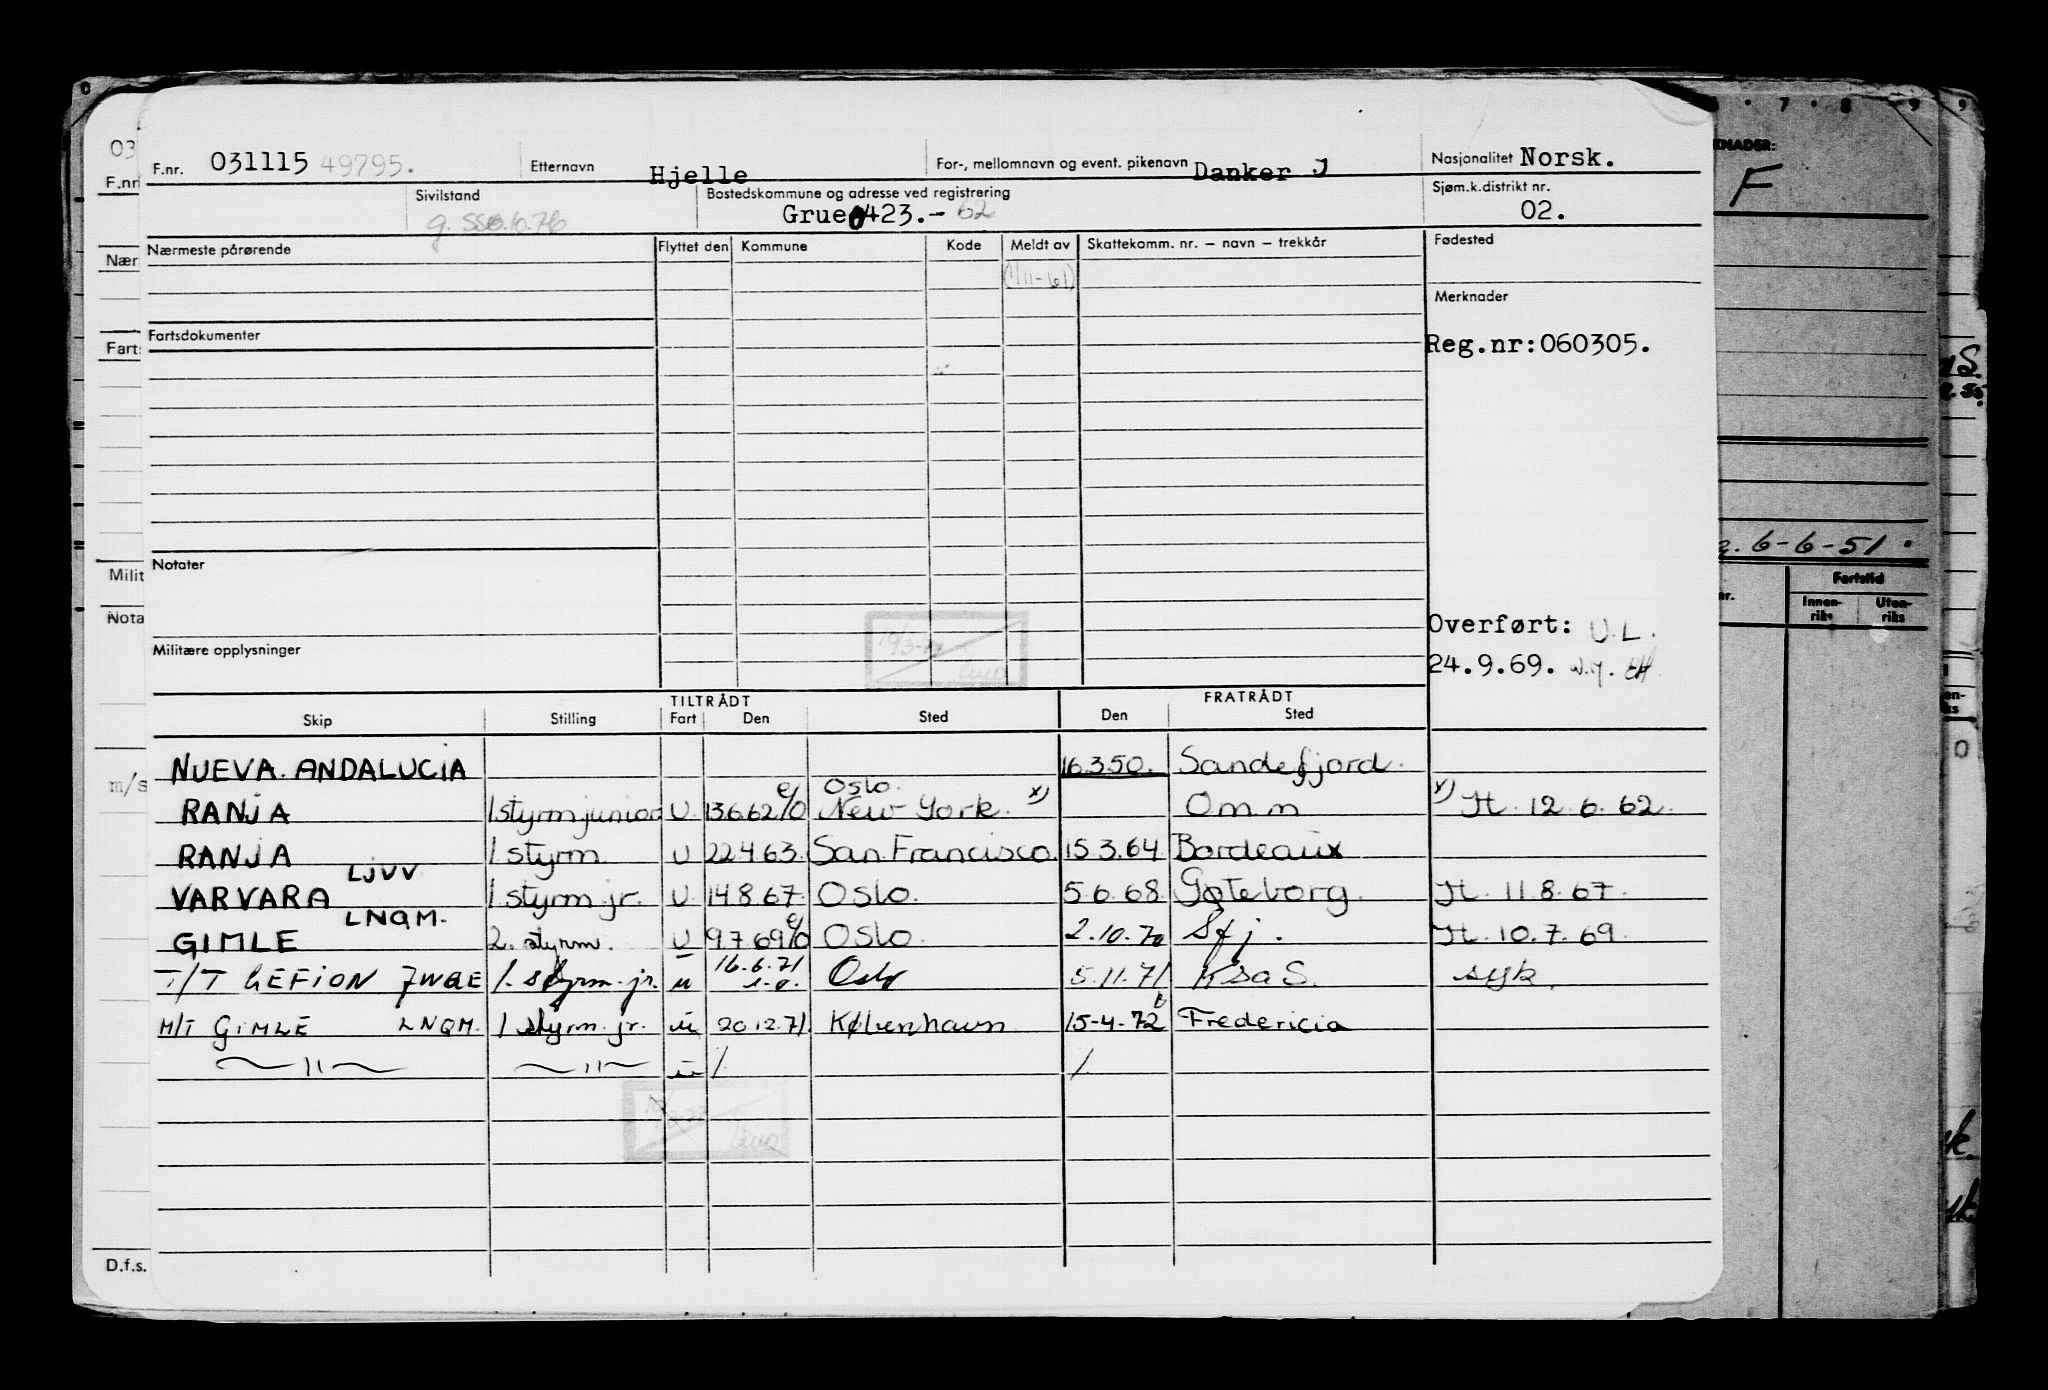 F.nr. 031115 49795. Etternavn Hjelle For-, mellomnavn og event. pikenavn Danker J Nasjonalitet Norsk.
Sivilstand Bostedskommune og adresse ved registrering Sjøm.k.distrikt nr.
Grue 0423.- 62 02.
Nærmeste pårørende Flyttet den Kommune Kode Meldt av Skattekomm. nr. – navn – trekkår Fødested
(1/11-61)
Merknader
Fartsdokumenter
Reg.nr:060305.
Notater
Overført: U.L.
Militære opplysninger
24.9.69.
TILTRÅDT FRATRÅDT
Skip Stilling Fart Den Sted Den Sted
NUEVA. ANDALUCIA 16.3.50. Sandefjord.
Oslo.
RANJA 1 styrm junior U. 13.6.62 e/o New York. x) Om.m x) Jt. 12.6.62.
RANJA 1 styrm. U 22.4.63. San Francisco. 15.3.64 Bordeaux
LJVV
VARVARA 1 styrm. jr. U. 14.8.67. Oslo. 5.6.68. Gøteborg. Jt. 11.8.67.
LNQM.
GIMLE 2. styrm. U 9.7.69 e/o Oslo. 2.10.70 Sfj. Jt. 10.7.69.
T/T GEFION JWGE 1. styrm. jr. u 16.6.71 Oslo 5.11.71 KSaS. syk.
M/T GIMLE LNQM. 1 styrm. jr. u 20.12.71. København 15-4.72 Fredericia
— 11 — — 11 — u / /
KNADER:
F
6-6-51.
Fartstid
Innen-
riks
Uten-
riks
03
F.nr
Nær
Farts
Milit
Nota
m/s
D.f.s.